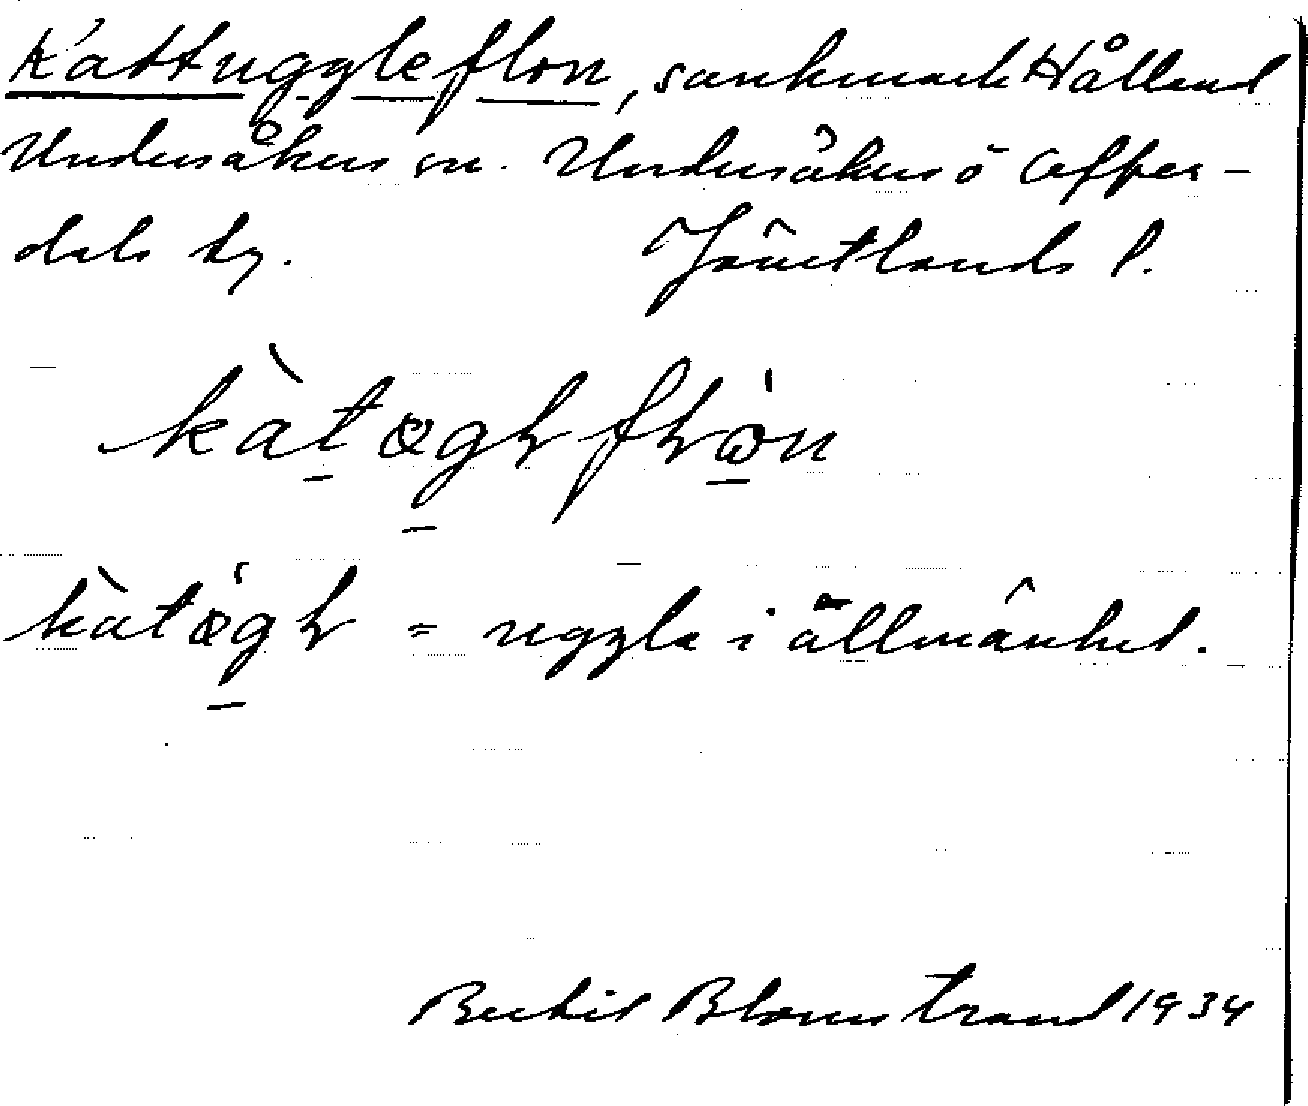 Kattuggleflon, sankmark Hålland
Undersåkers sn. Undersåkers o Offer-
dals tg. Jämtlands l.
kàtøgl flɷn
kàtøgl = uggla i allmänhet.
Bertil Blomstrand 1934